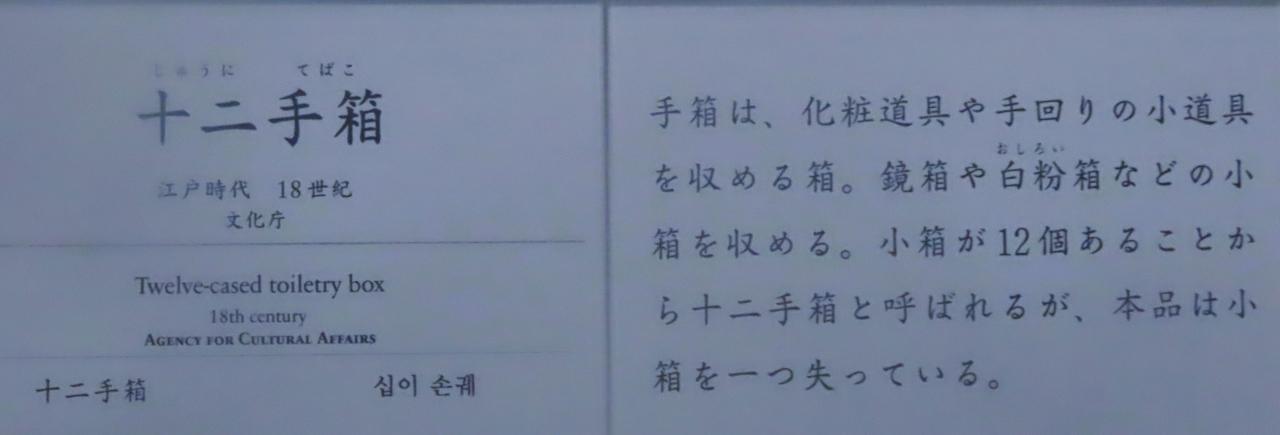 じゅうに てばこ
十二手箱
江戸時代 18世紀
文化庁
Twelve-cased toiletry box
18th century
AGENCY FOR CULTURAL AFFAIRS
十二手箱
십이 손궤
手箱は、化粧道具や手回りの小道具
おしろい
を収める箱。鏡箱や白粉箱などの小
箱を収める。小箱が12個あることか
ら十二手箱と呼ばれるが、本品は小
箱を一つ失っている。